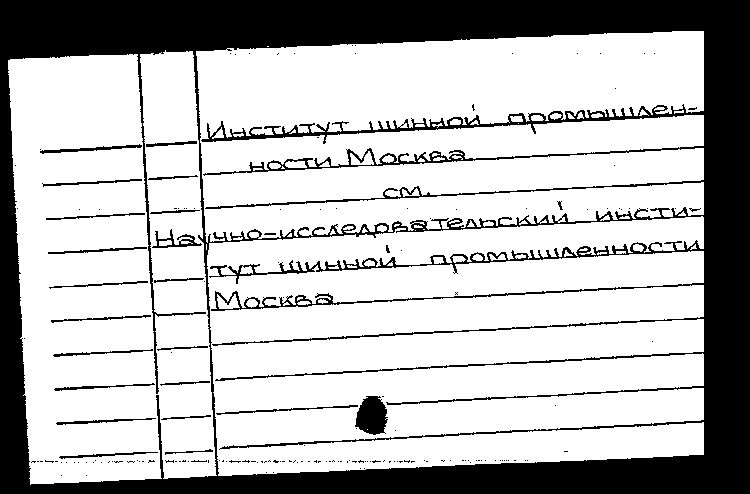 Институт шинной промышлен-
ности. Москва.
см.
Научно-исследовательский инсти-
тут шинной промышленности
Москва.